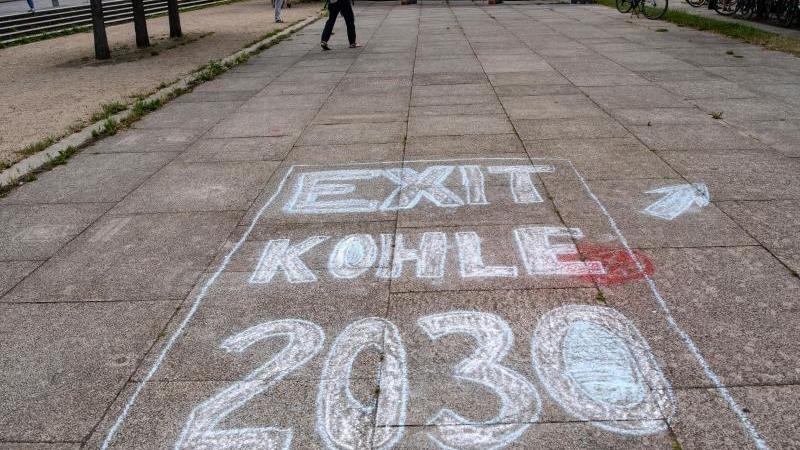 EXIT
KOHLE
2030